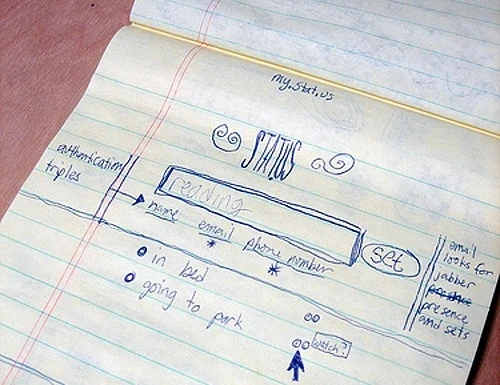 my.stat.us
STAT.US
authentification
triples
reading
name
email
phone number
set
in bed
going to park
watch?
email
looks for
jabber
presence
presence
and sets